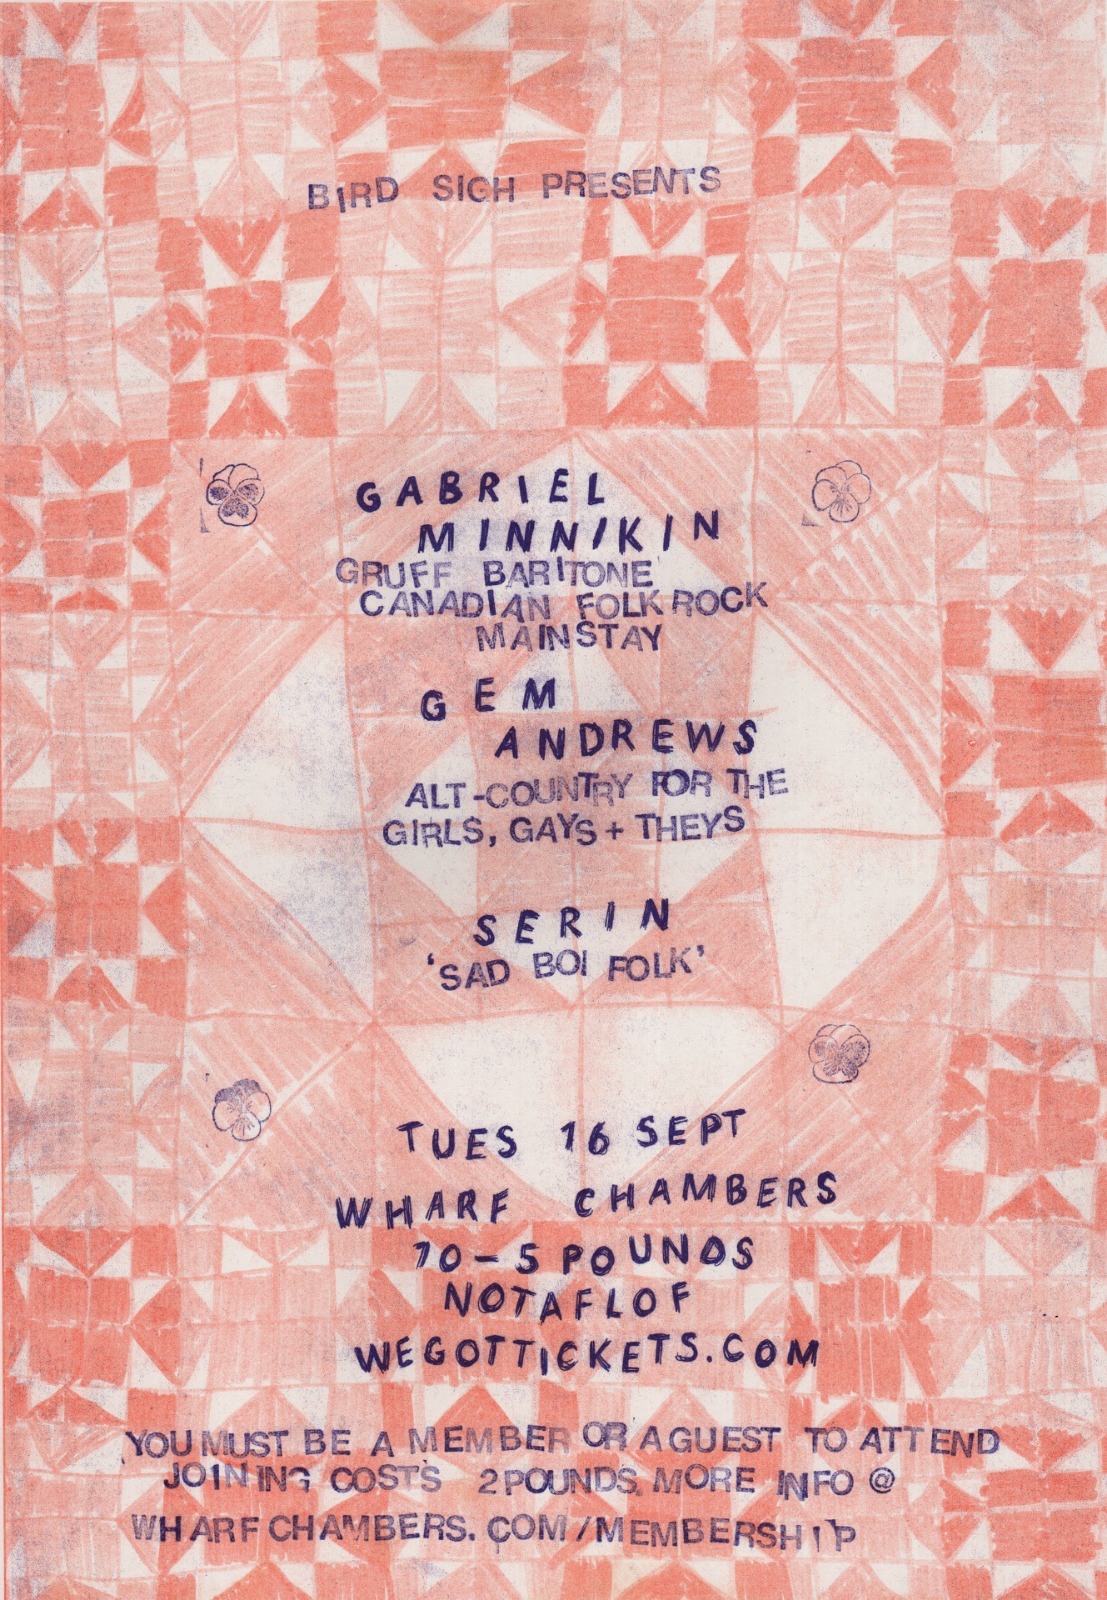 BIRD SIGH PRESENTS
GABRIEL
MINNIKIN
GRUFF BARITONE
CANADIAN FOLK ROCK
MAINSTAY
GEM
ANDREWS
ALT-COUNTRY FOR THE
GIRLS, GAYS + THEYS
SERIN
'SAD BOI FOLK'
TUES 16 SEPT
WHARF CHAMBERS
10-5 POUNDS
NOTAFLOF
WEGOTTICKETS.COM
YOU MUST BE A MEMBER OR A GUEST TO ATTEND
JOINING COSTS 2 POUNDS. MORE INFO @
WHARFCHAMBERS.COM/MEMBERSHIP